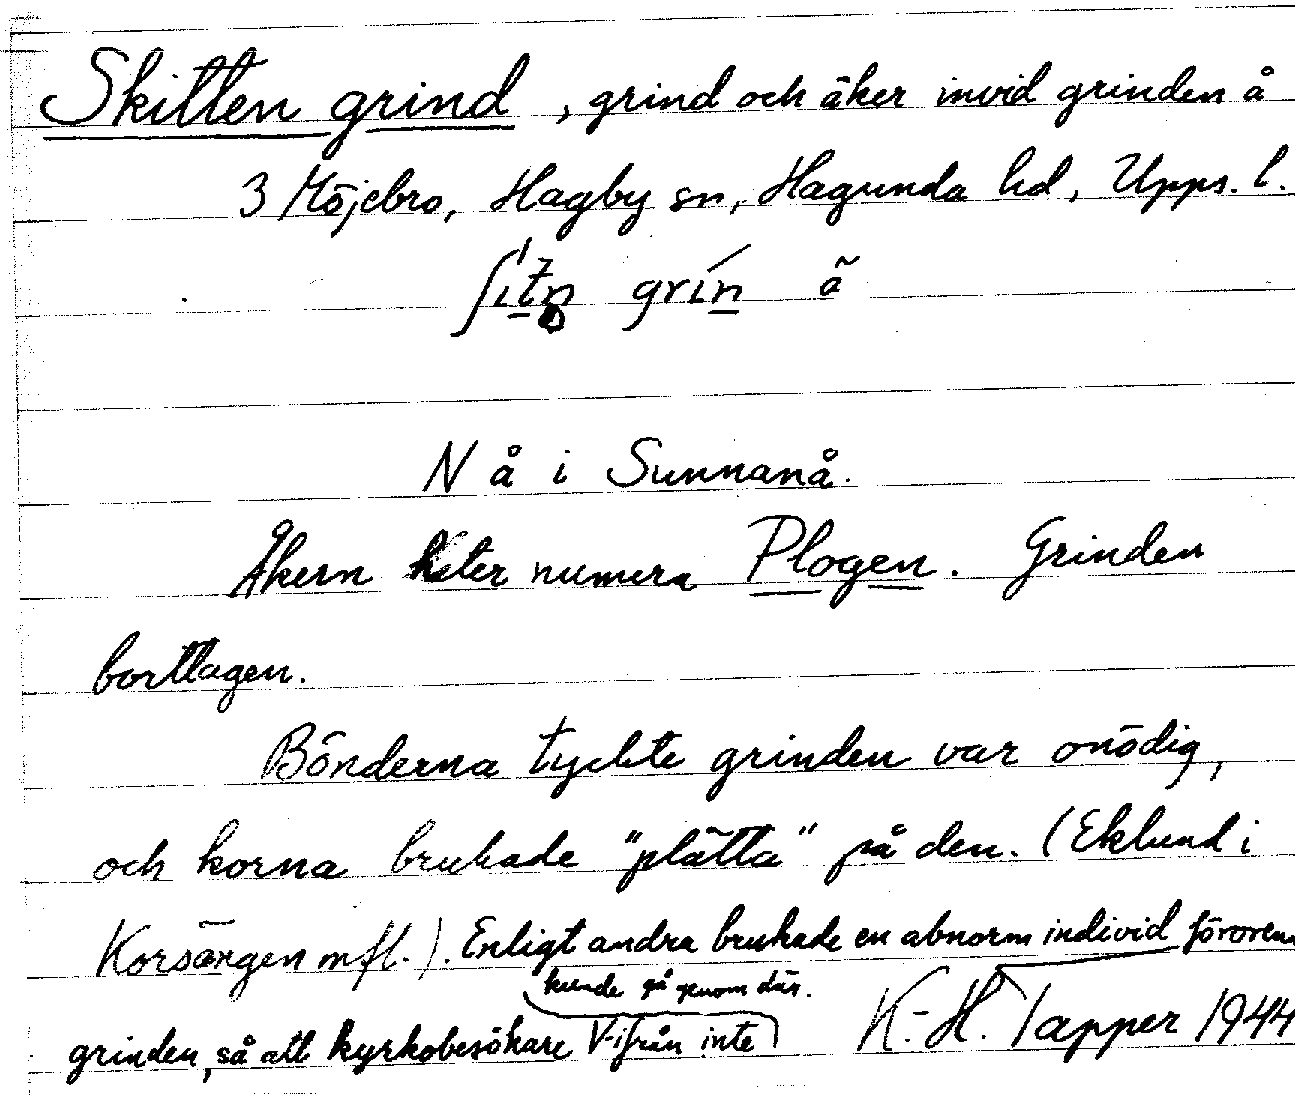 Skitten grind, grind och åker invid grinden å
3 Möjebro, Hagby sn, Hagunda hd, Upps. l.
grín
N å i Sunnanå.
Åkern heter numera Plogen. Grinden
borttagen.
Bönderna tyckte grinden var onödig,
och korna brukade "plätta" på den. (Eklund i
Korsängen mfl.). Enligt andra brukade en abnorm individ förorena
grinden, så att kyrkobesökare V-ifrån inte
kunde gå genom där.
K.-H. Tapper 1944